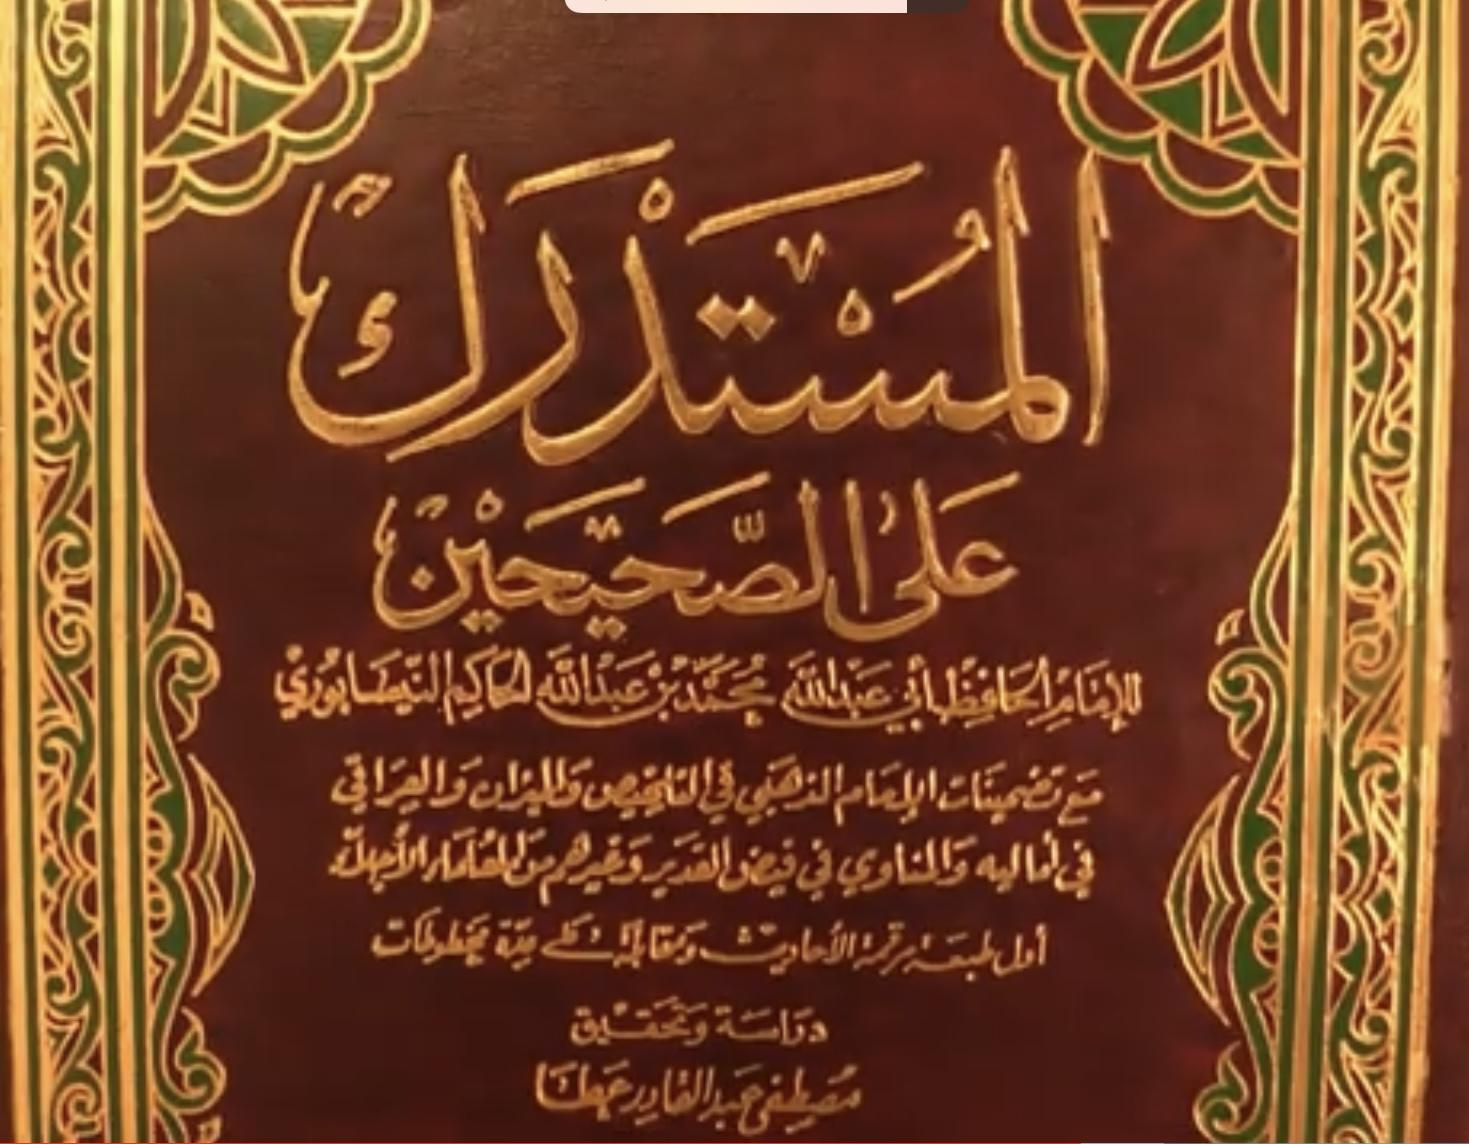 المُسْتَدْرَك
عَلى الصَّحِيْحَيْن
للإمَام الحَافِظ أبي عَبْد الله مُحَمَّد بْن عَبْد الله الحَاكِم النّيسَابُوريْ
مَع تضمينَات الإمَام الذهَبي في التلخيص وَالميزان وَالعِرَاقي
في أماليه وَالمناوي في فيض القدير وَغيرهم من العُلمَاء الأجلاّء
أول طبعَة مرقمَة الأحاديث وَمقابلَة عَلى عِدّة مخطوطَات
دِرَاسَة وَتحَقيق
مصْطفى عَبد القادِر عَطَا